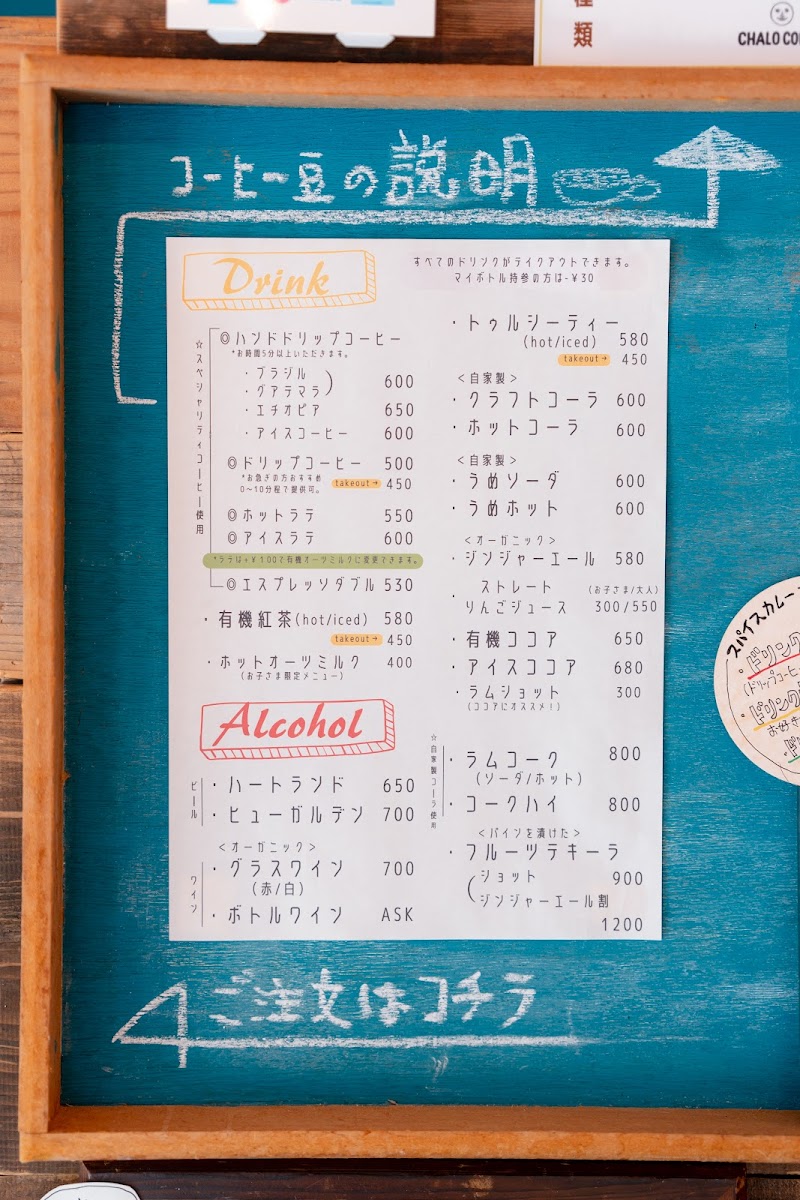 種類
CHALO CO
コーヒー豆の説明
Drink
すべてのドリンクがテイクアウトできます。
マイボトル持参の方は-¥30
☆スペシャリティコーヒー使用
◎ハンドドリップコーヒー
*お時間5分以上いただきます。
・ブラジル
・グアテマラ) 600
・エチオピア 650
・アイスコーヒー 600
◎ドリップコーヒー 500
*お急ぎの方おすすめ
0~10分程で提供可。 takeout→ 450
◎ホットラテ 550
◎アイスラテ 600
*ラテは+¥100で有機オーツミルクに変更できます。
◎エスプレッソダブル 530
・有機紅茶(hot/iced) 580
takeout→ 450
・ホットオーツミルク 400
(お子さま限定メニュー)
・トゥルシーティー
(hot/iced) 580
takeout→ 450
<自家製>
・クラフトコーラ 600
・ホットコーラ 600
<自家製>
・うめソーダ 600
・うめホット 600
<オーガニック>
・ジンジャーエール 580
・ストレート (お子さま/大人)
りんごジュース 300/550
・有機ココア 650
・アイスココア 680
・ラムショット 300
(ココアにオススメ!)
Alcohol
ビール
・ハートランド 650
・ヒューガルデン 700
<オーガニック>
ワイン
・グラスワイン 700
(赤/白)
・ボトルワイン ASK
☆自家製コーラ使用
・ラムコーク 800
(ソーダ/ホット)
・コークハイ 800
<パインを漬けた>
・フルーツテキーラ
(ショット 900
ジンジャーエール割
1200
ご注文はコチラ
スパイスカレー
・ドリンク
(ドリップコーヒ
・ドリンク
お好き
・ド